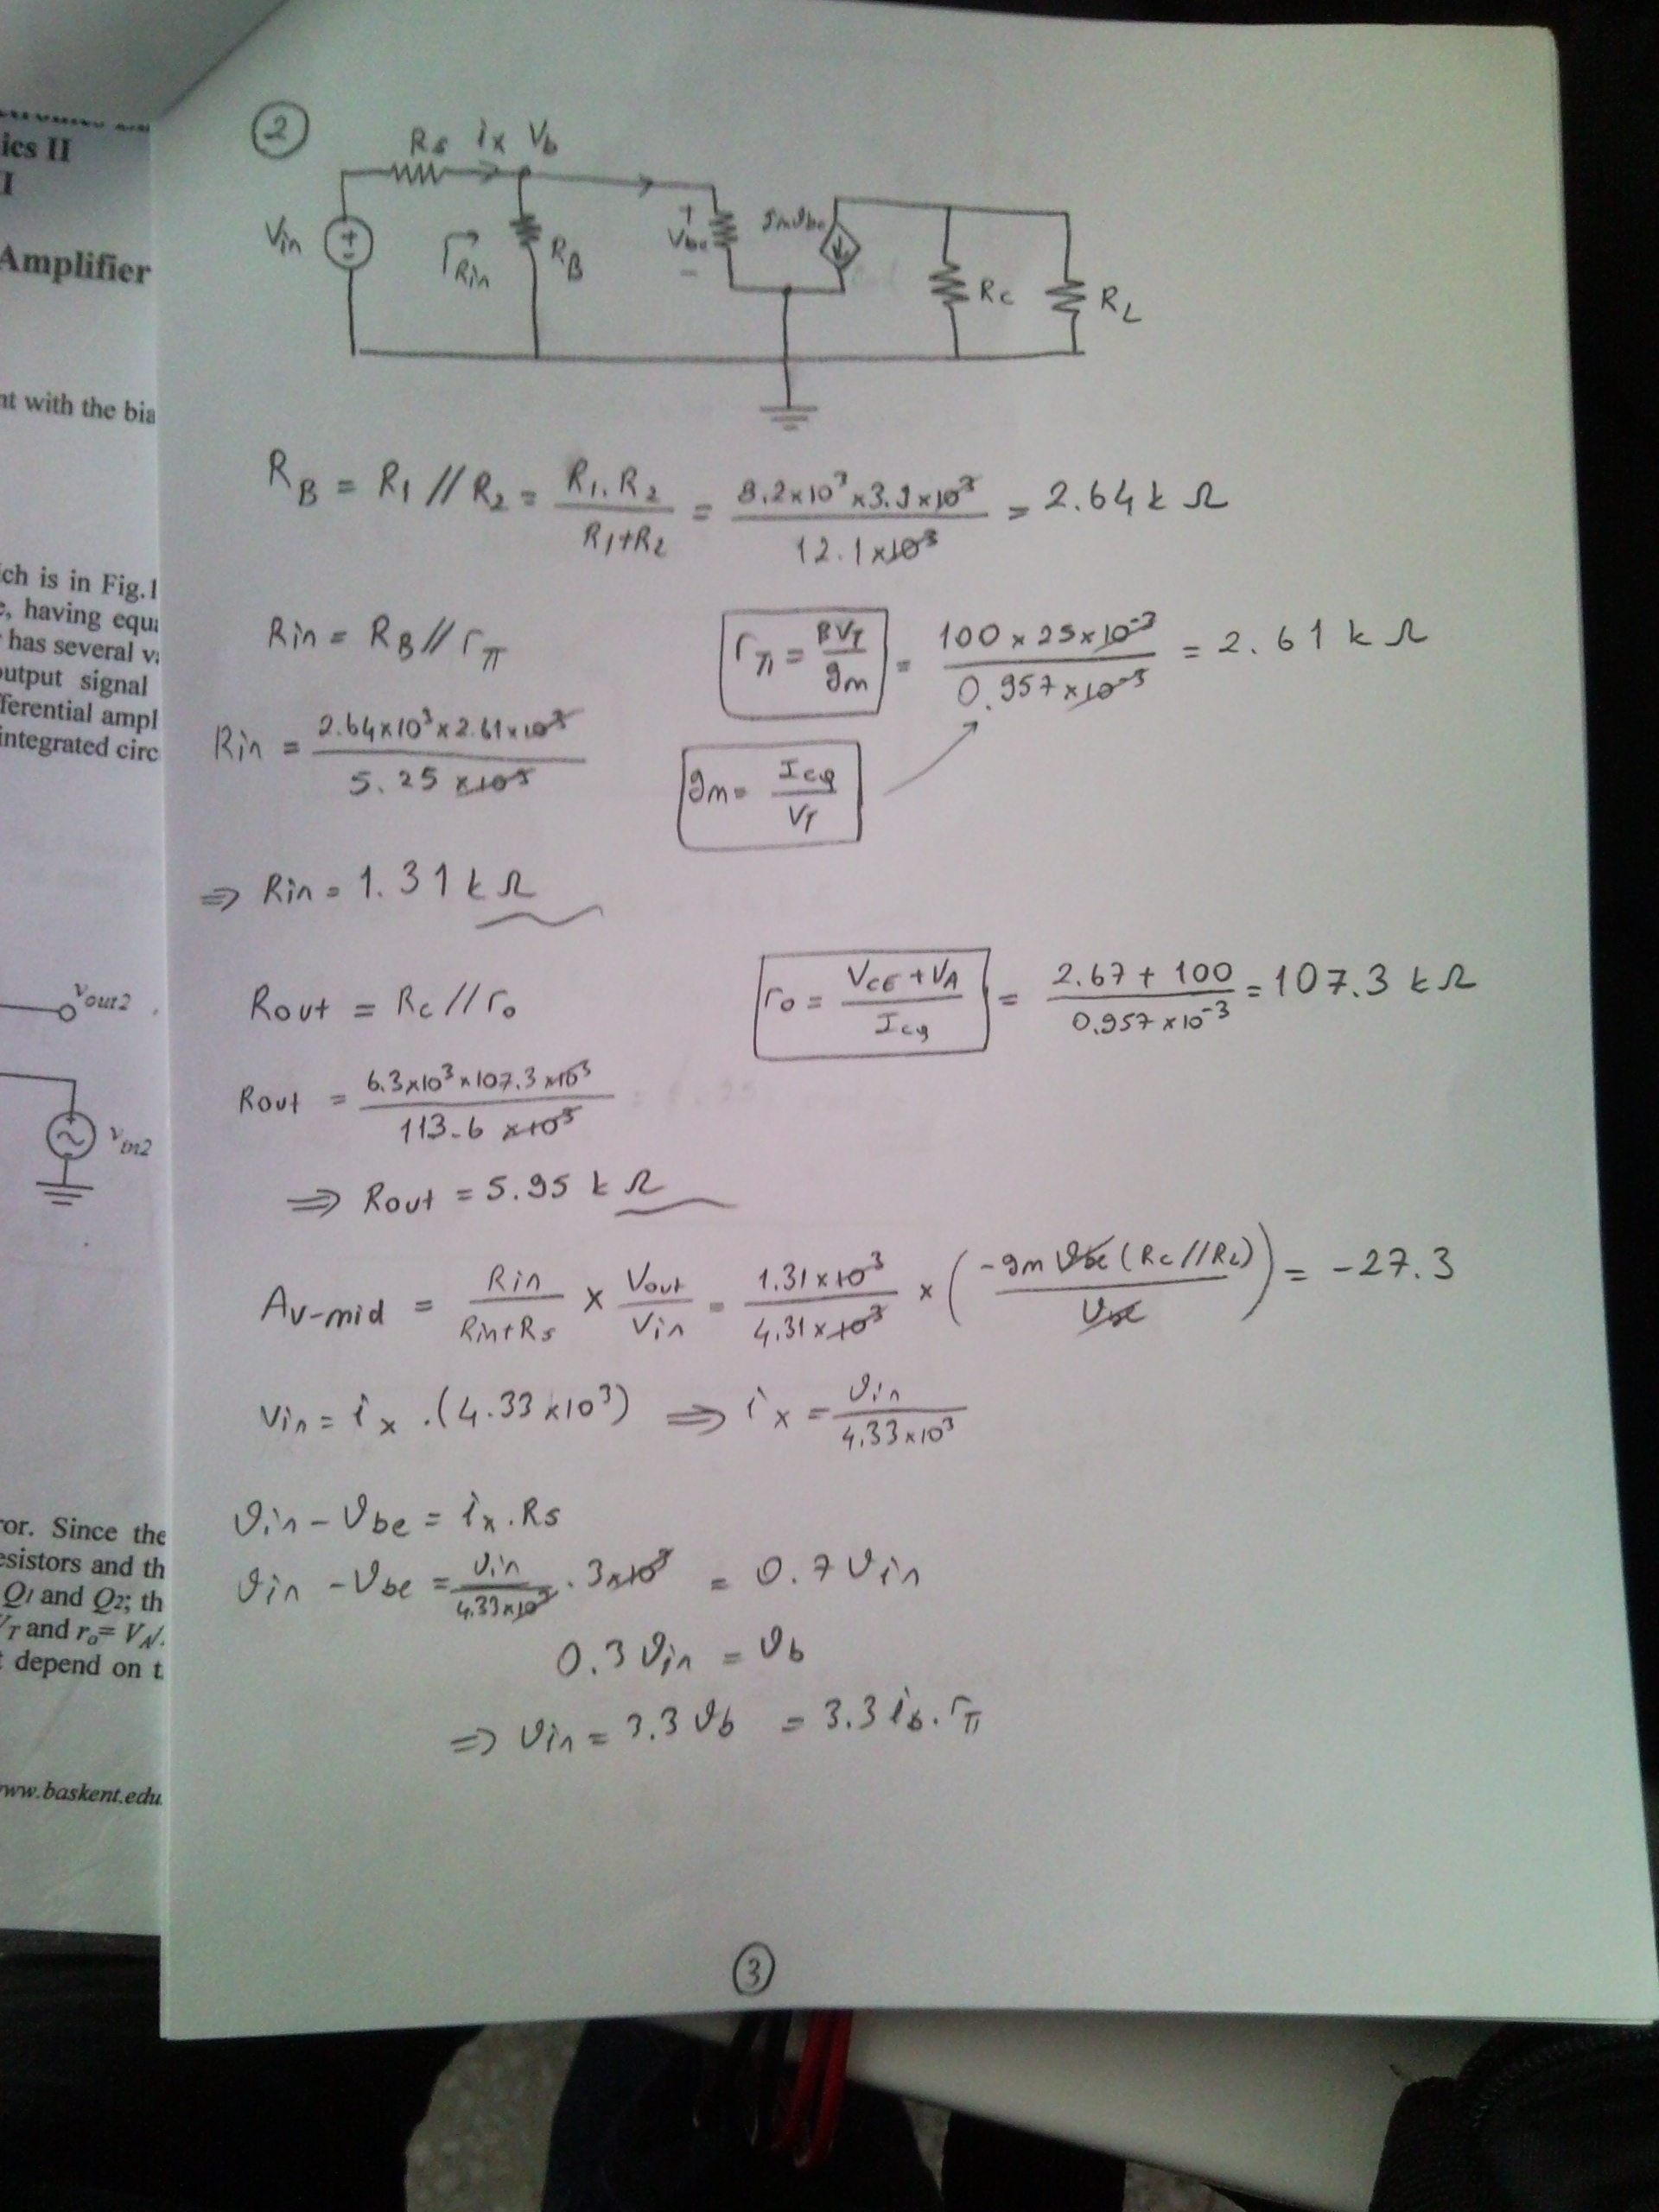 ics II
I
Amplifier
with the bia
is in Fig.1
having
has several
utput signal
ferential ampl
integrated circ
vout2
vin2
or. Since the
esistors and th
Q1 and Q2; th
and ro= VA/
depend on t
www.baskent.edu
2
Rs ix Vb
Vin + - Rin RB + Vbe - gmVbe Rc RL
RB = R1 // R2 = R1.R2 / R1+R2 = 8.2x10³ x3.9x10³ / 12.1x10³ = 2.64k Ω
Rin = RB // rπ
rπ = βVT / gm = 100 x 25x10⁻³ / 0.957x10⁻³ = 2.61 k Ω
Rin = 2.64x10³x2.61x10³ / 5.25 x10³
gm = Icq / VT
⇒ Rin = 1.31 k Ω
Rout = Rc // ro
ro = VCE + VA / Icq = 2.67 + 100 / 0.957x10⁻³ = 107.3 k Ω
Rout = 6.3x10³x107.3x10³ / 113.6 x10³
⇒ Rout = 5.95 k Ω
Av-mid = Rin / Rin+Rs x Vout / Vin = 1.31x10³ / 4.31x10³ x (-gm Vbe (Rc//RL) / Vbe) = -27.3
Vin = ix .(4.33x10³) ⇒ ix = Vin / 4.33x10³
Vin - Vbe = ix.Rs
Vin - Vbe = Vin / 4.33x10³ . 3x10³ = 0.7 Vin
0.3 Vin = Vb
⇒ Vin = 3.3 Vb = 3.3 ib.rπ
3